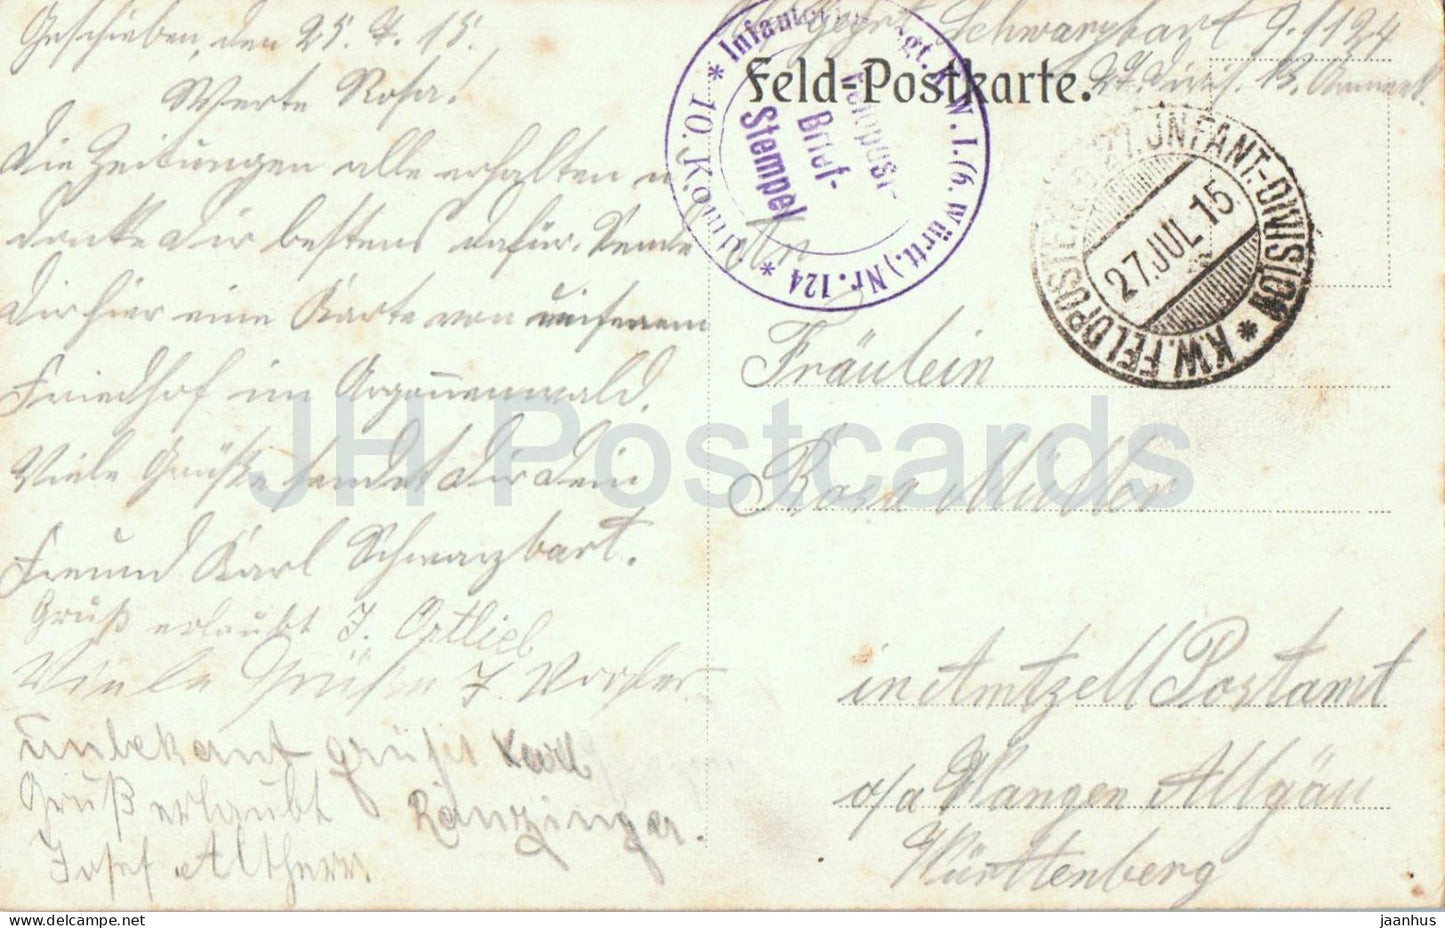 Geschrieben, den 25. 7. 15.
Werte Rosa!
Die Zeitungen alle erhalten u
danke Dir bestens dafür. Sende
Dir hier eine Karte von unserem
Friedhof im Argonnenwald.
Viele Grüße sendet Dir Dein
Freund Karl Schwarzbart.
Gruß erlaubt J. Ortlieb
Viele Grüße J.
Unbekant grüßt Karl
Ranzinger.
Gruß erlaubt
Josef Altherr
Gefr. Schwarzbart 9./124
27. Divis. 13. Armeek.
Feld-Postkarte.
* Infanterie Regt. K. W. I. (6. Württ.) Nr. 124 * 10. Komp.
Feldpost-
Brief-
Stempel
K.W. FELDPOSTEXP. 27. INFANT.-DIVISION *
27. JUL. 15
An
Fräulein
Rosa Müller
in Amtzell Postamt
o/a Wangen Allgäu
Württenberg
JH Postcards
jaanhus